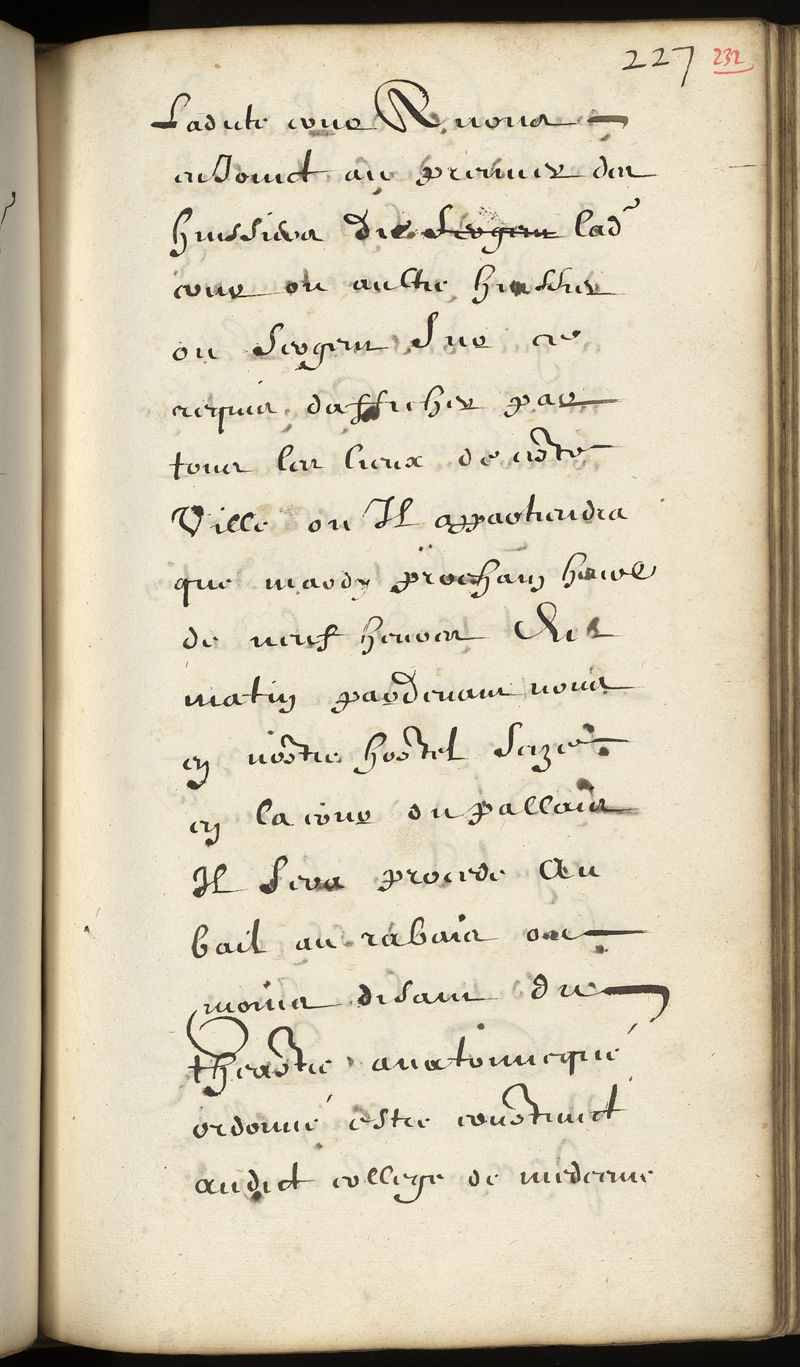 227 232
Ladicte cour Et nous
enjoinct au premier des
huissiers de Sergent lad
cour ou aultre huissier
ou Sergent Sur ce
requis dafficher par
tous les lieux de ceste
Ville ou Il appartiendra
que mardy prochain heure
de neuf heures du
matin pardevant nous
en nostre hostel Seize
en la cour du pallais
Il Sera procede Au
bail au rabais ou
moins disant du
theastre anatomicque
ordonné estre construict
audict college de medecine